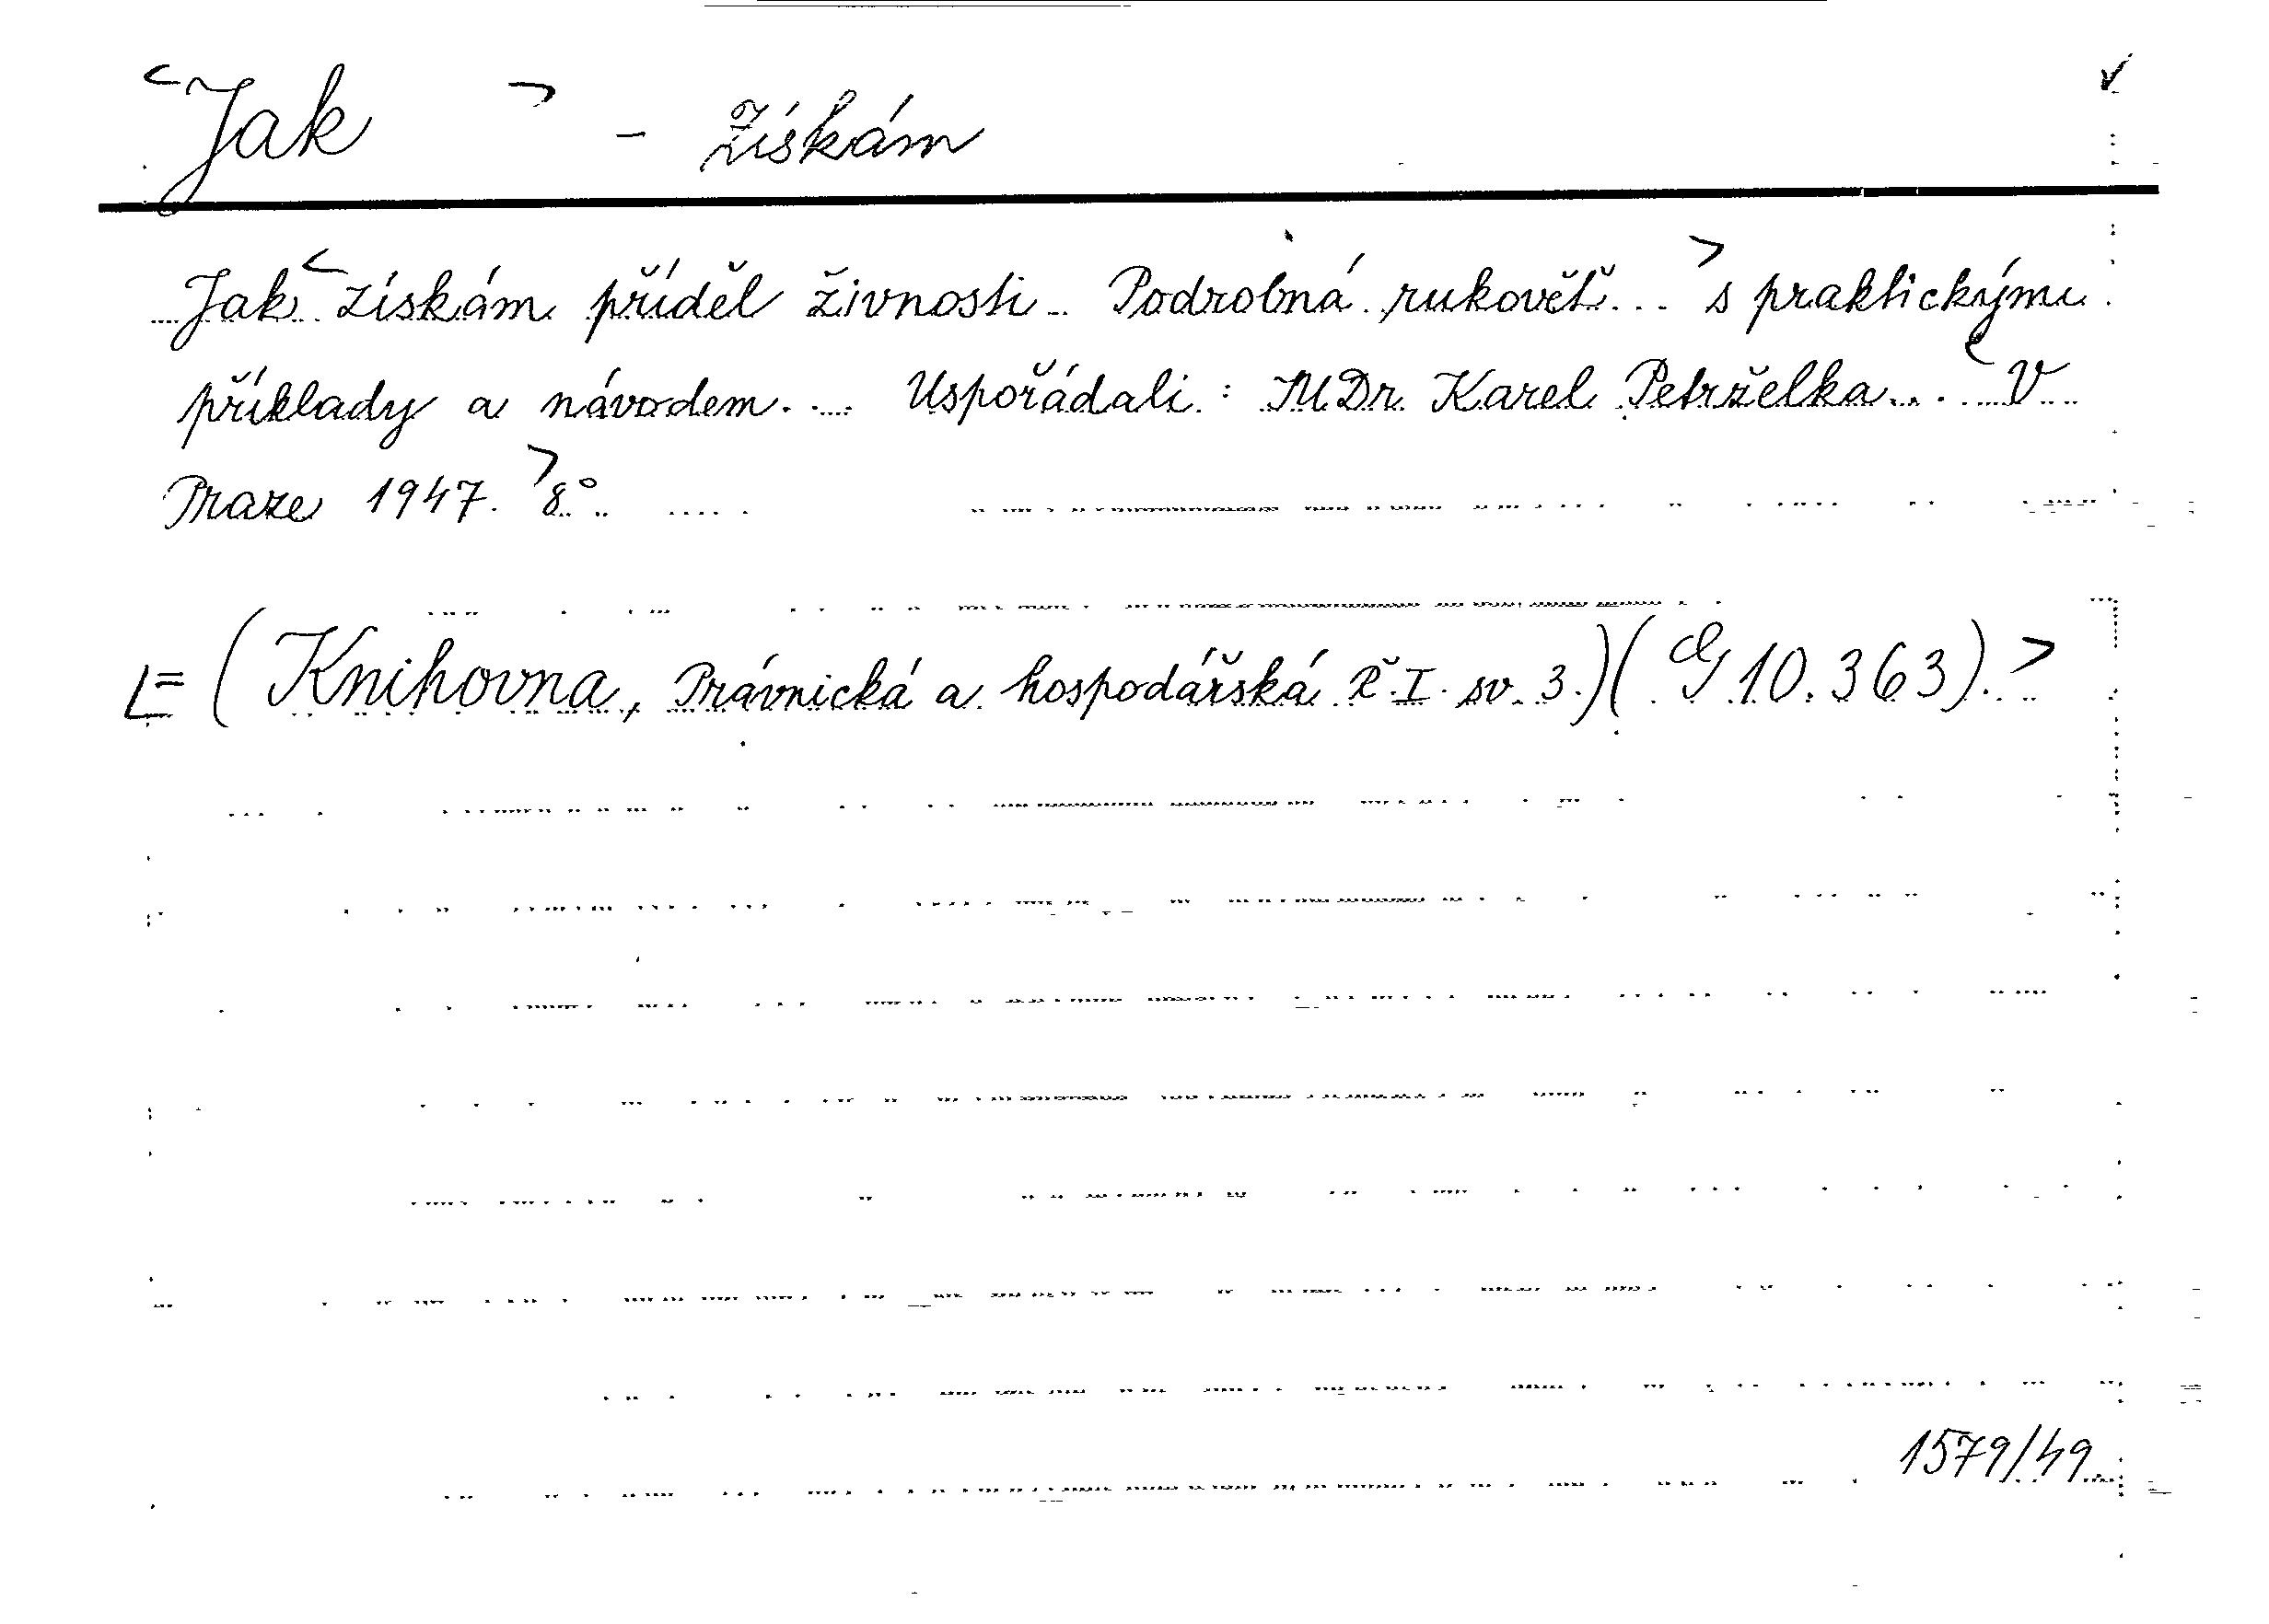 <Jak> - získám
Jak <získám příděl živnosti. Podrobná rukověť...> s praktickými
příklady a návodem. ... Uspořádali: JUDr. Karel Petrželka... <V
Praze 1947.> 8°.
(Knihovna, Právnická a hospodářská Ř. I. sv. 3.)(G 10.363).>
1579/49